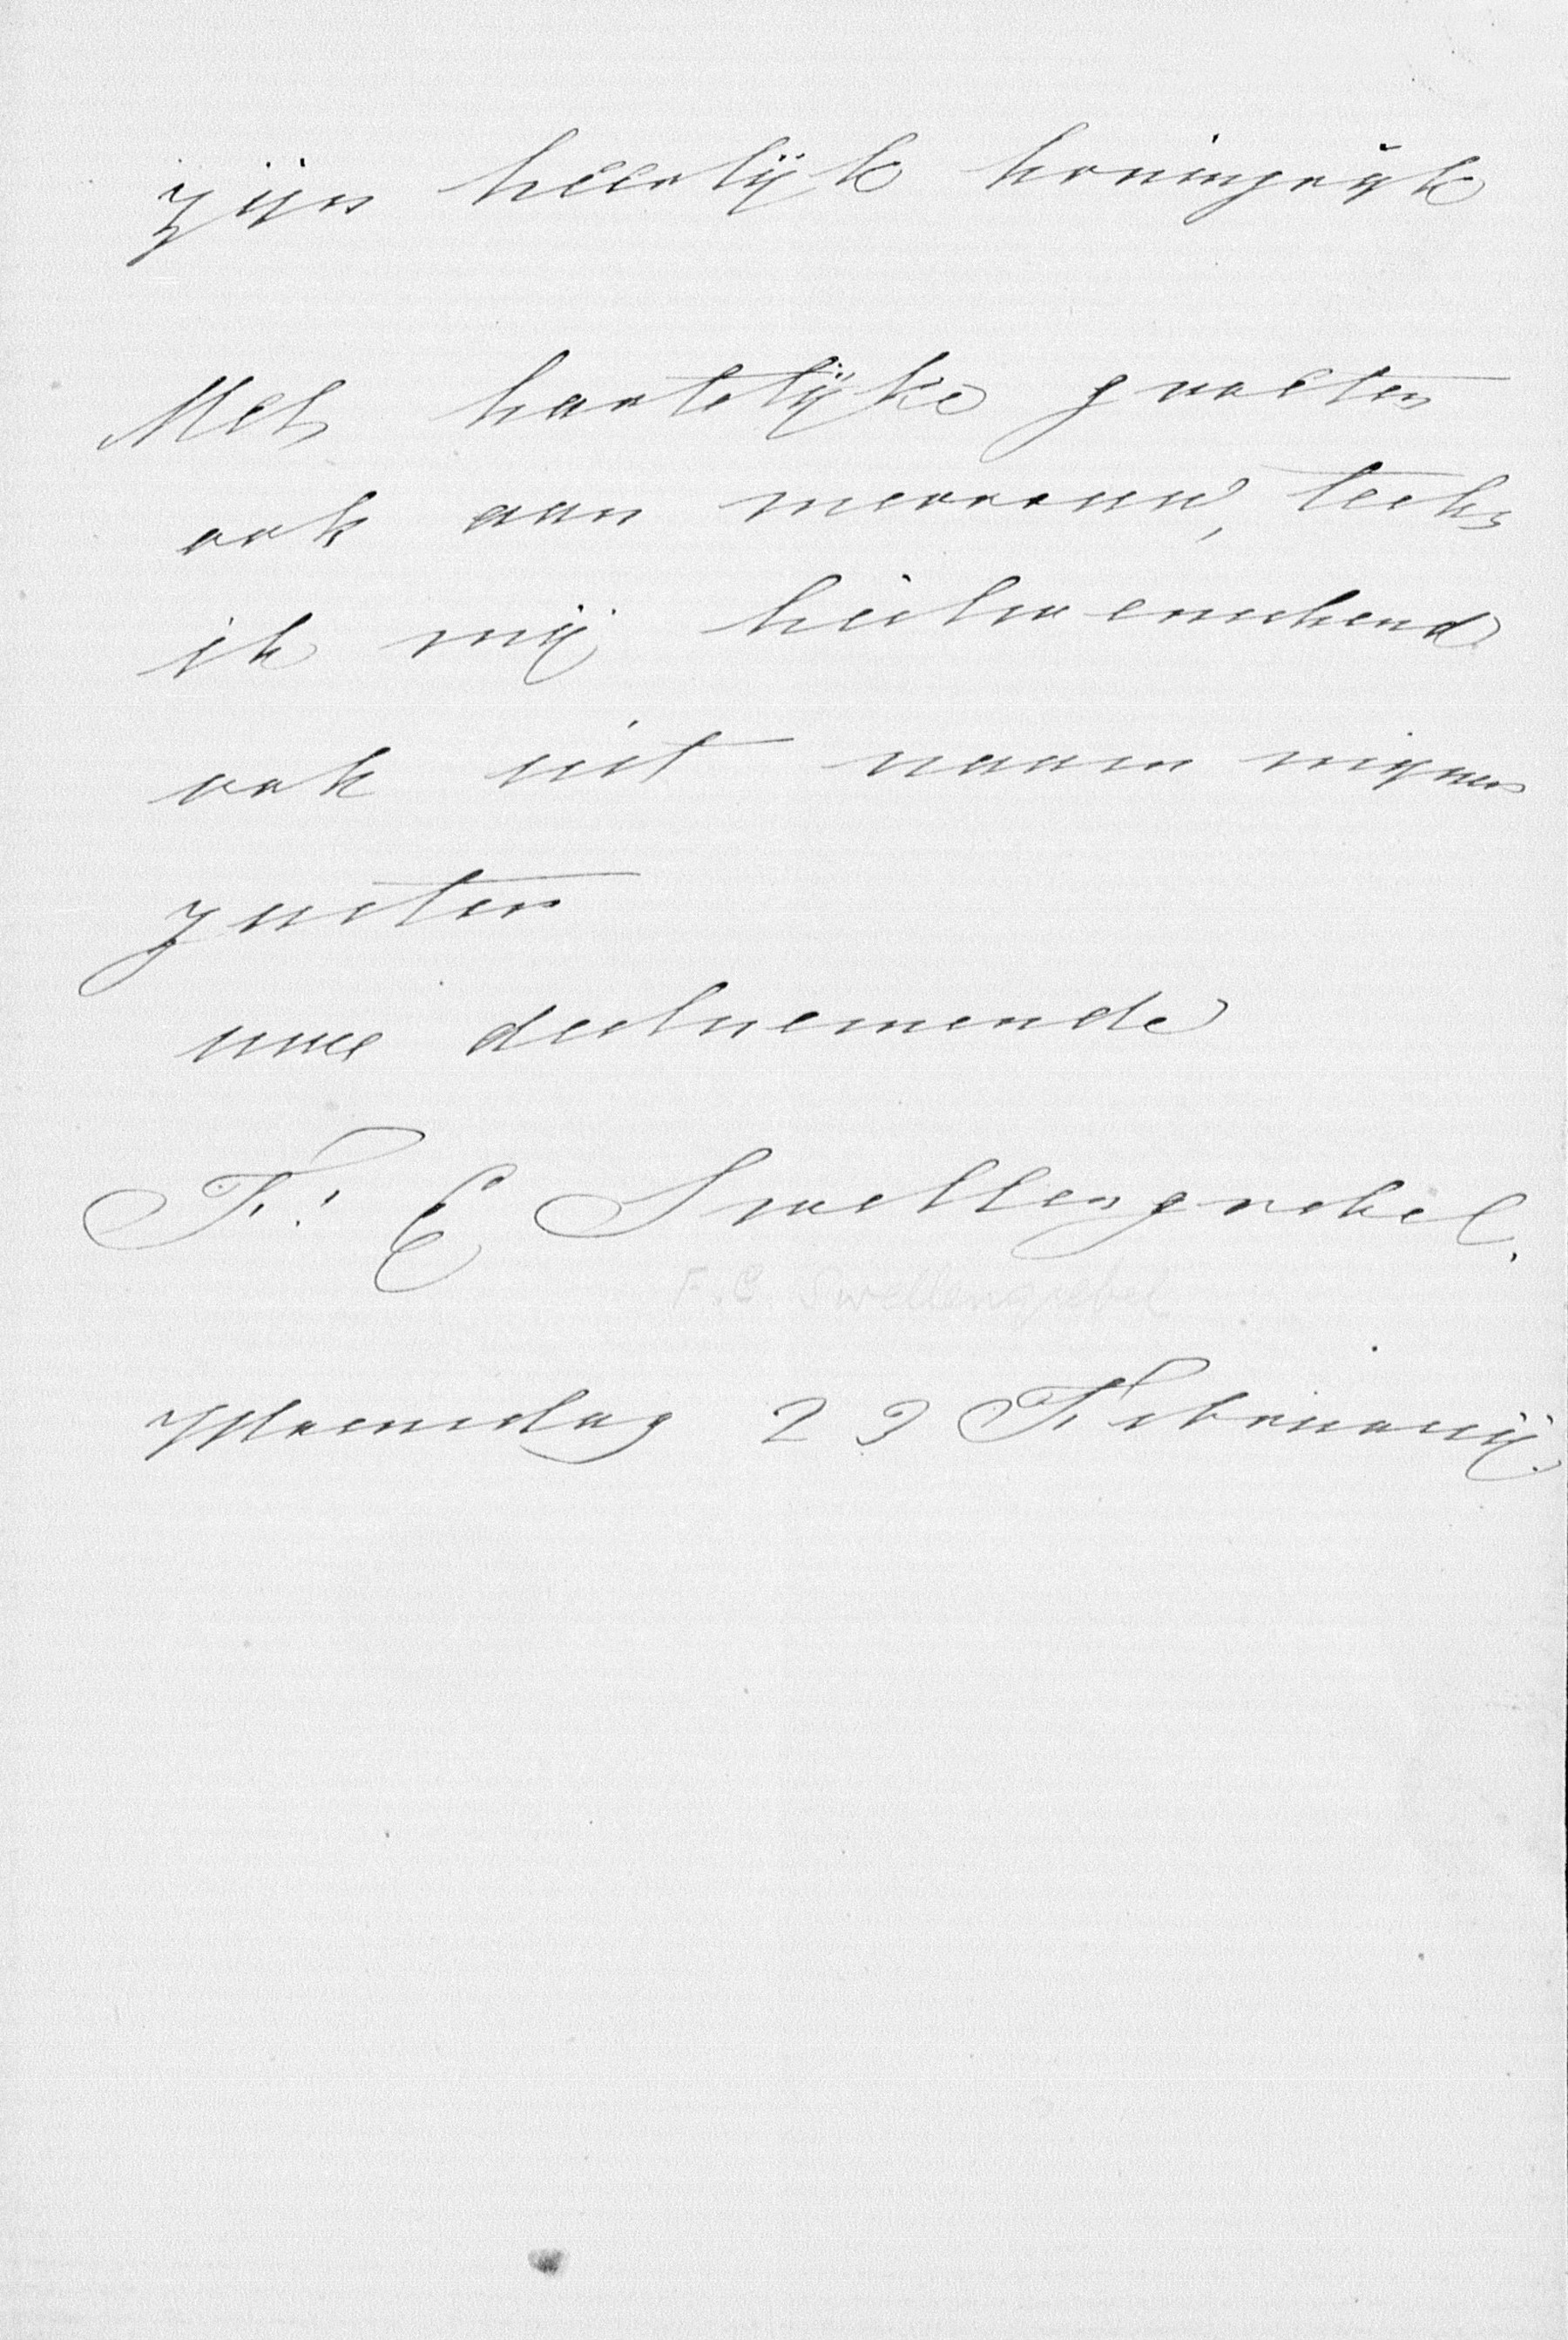 zijn heerlijk koningrijk
Met hartelijke groeten
ook aan mevrouw, teeken
ik mij heilwenschend
ook uit naam mijner
zuster
uwe deelnemende
F. E Swellengrebel.
F. E. Swellengrebel
Woensdag 23 Februarij.